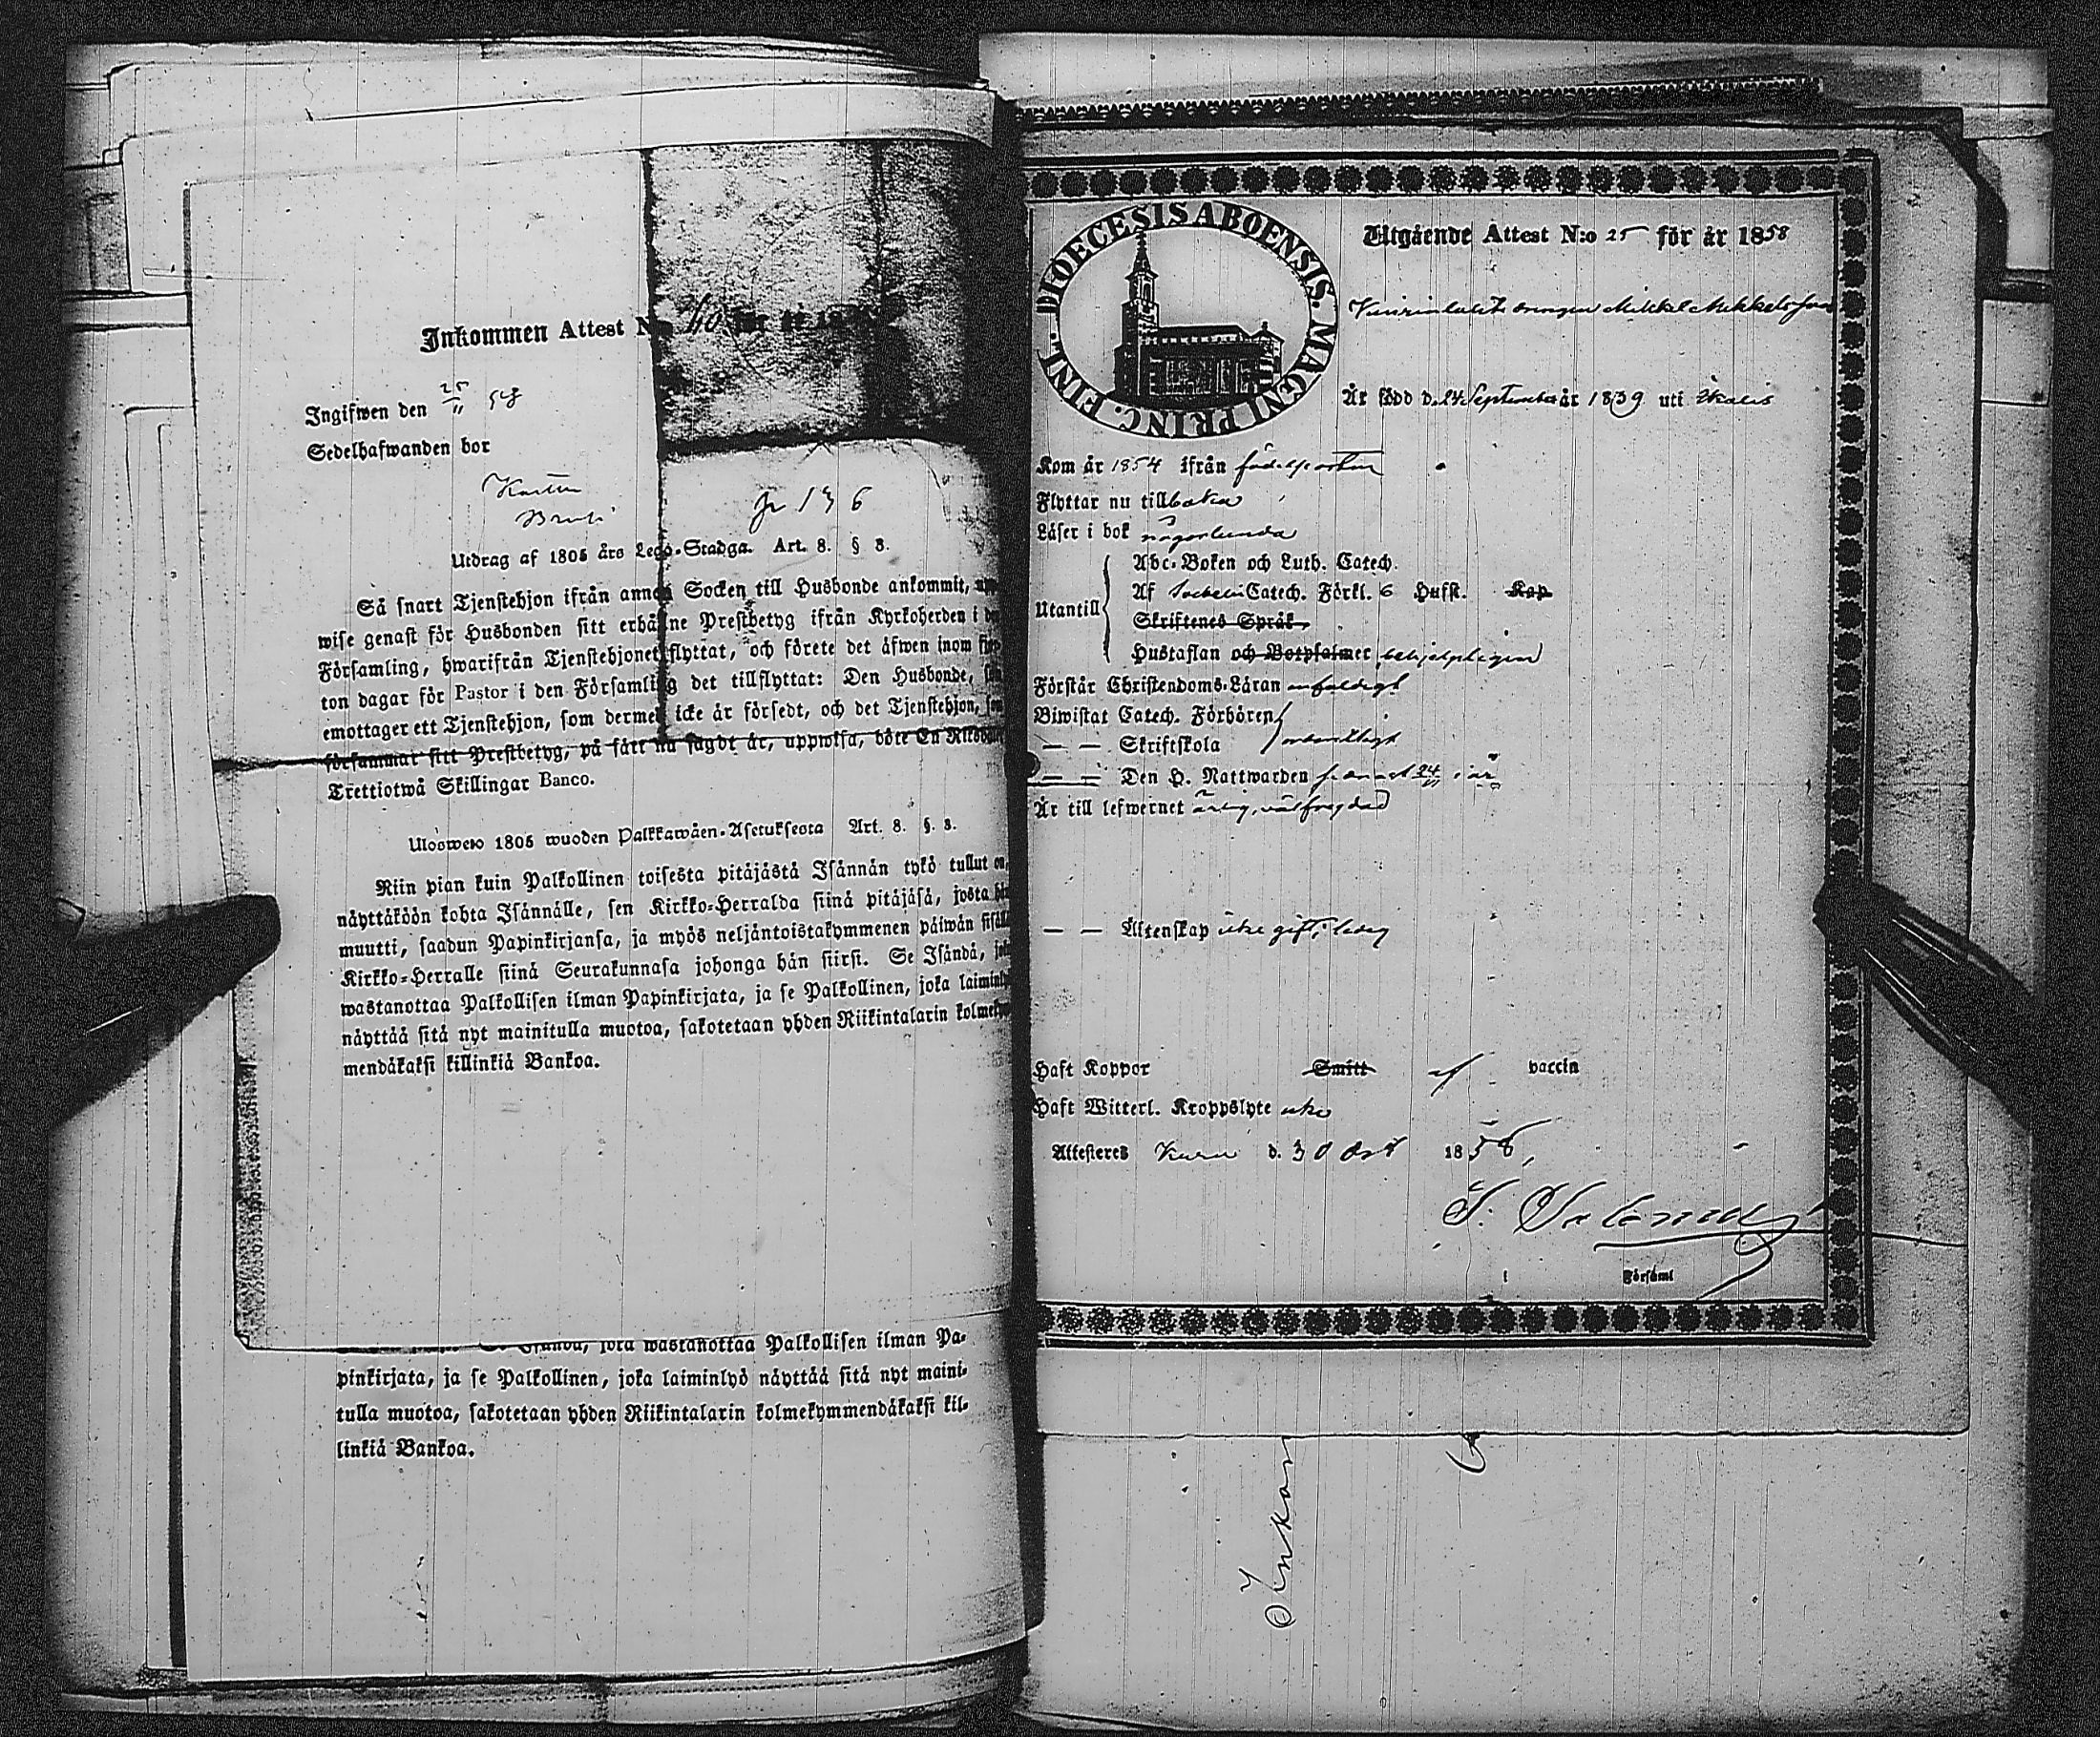 Inkommen Attest N:o 40 för år 18
Ingifwen den 25/11 58
Sedelhafwanden bor
136
Utdrag af 1805 års Lego-Stadga. Art. 8. § 8.
Så snart Tjenstehjon ifrån annan Socken till Husbonde ankommit, upp-
wise genast för Husbonden sitt erhållne Prestbetyg ifrån Kyrkoherden i den
Församling, hwarifrån Tjenstehjonet flyttat, och förete det äfwen inom fjor-
ton dagar för Pastor i den Församling det tillflyttat: Den Husbonde, som
emottager ett Tjenstehjon, som dermed icke är försedt, och det Tjenstehjon, som
försummar sitt Prestbetyg, på sätt nu sagdt är, uppwisa, böte En Riksdaler
Trettiotwå Skillingar Banco.
Ulosweto 1805 wuoden Palkkawäen-Asetuksesta Art. 8. §. 8.
Niin pian kuin Palkollinen toisesta pitäjästä Isännän tykö tullut on,
näyttäköön kohta Isännälle, sen Kirkko-Herralda siinä pitäjäsä, josta hän
muutti, saadun Papinkirjansa, ja myös neljäntoistakymmenen päiwän sisällä
Kirkko-Herralle siinä Seurakunnasa johonga hän siirsi. Se Isändä, joka
wastanottaa Palkollisen ilman Papinkirjata, ja se Palkollinen, joka laiminlyö
näyttää sitä nyt mainitulla muotoa, sakotetaan yhden Riikintalarin kolmekym-
mendäkaksi killinkiä Bankoa.
Isändä, joka wastanottaa Palkollisen ilman Pa-
pinkirjata, ja se Palkollinen, joka laiminlyö näyttää sitä nyt maini-
tulla muotoa, sakotetaan yhden Riikintalarin kolmekymmendäkaksi kil-
linkiä Bankoa.
DIOECESIS ABOENSIS. MAGNI PRINC. FINL.
Utgående Attest N:o 25 för år 1858
drengen Mikkel Mikkelsson
Är född d. 24 September år 1839 uti Ikalis
Kom år 1854 ifrån födelseorten
Flyttar nu tillbaka
Läser i bok någorlunda
Utantill
Abc-Boken och Luth. Catech.
Af Catech. Förkl. 6 Hufst. Kap
Skriftenes Språk,
Hustaflan och Botpsalmer behjelpligen
Förstår Christendoms-Läran enfaldigt
Biwistat Catech. Förhören
— — Skriftskola ordentligt
— — Den H. Nattwarden senast 24 i år
Är till lefwernet ärlig, välfrejdad
— — Äktenskap icke gift, ledig
Haft Koppor Smitt af vaccin
Haft Witterl. Kroppslyte icke
Attesteres Kuru d. 30 Oct 1858,
i Församl
Inkom